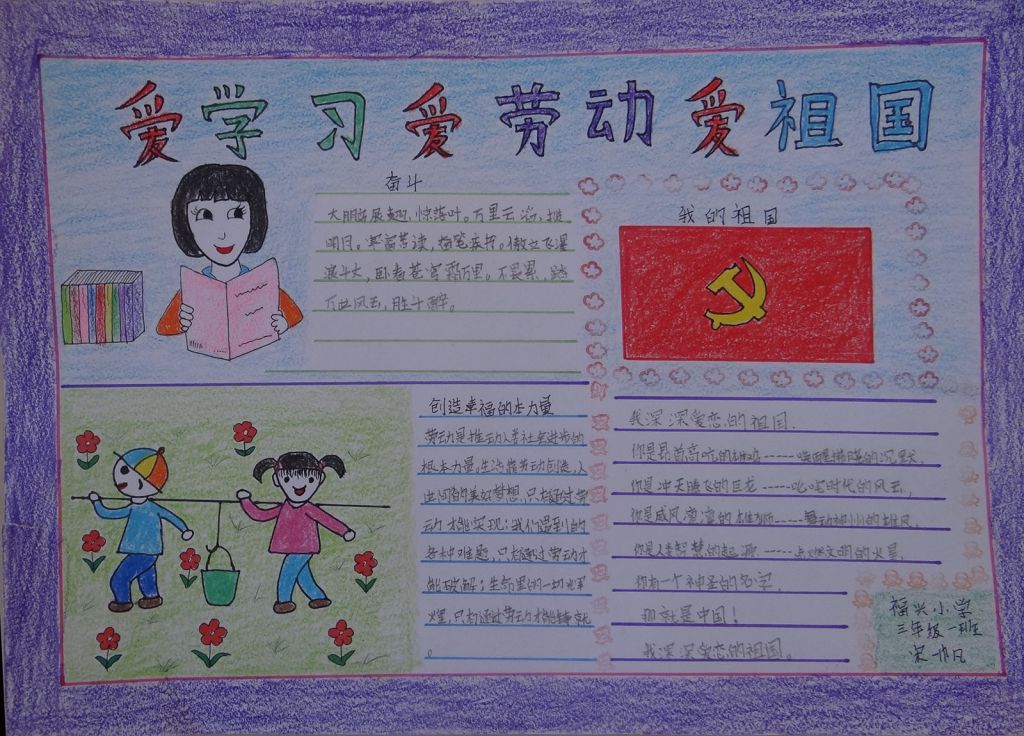 爱学习爱劳动爱祖国
奋斗
大鹏诉展翅,惊落叶。万里云
明月。寒窗苦读,
斗大,卧看苍穹霜万里。不畏累,踏
万世风云,胜
创造幸福的力量
劳动是推动人类社会进步的
根本力量。生活靠劳动创造,人
世间的美好梦想,只有通过劳
动才能实现;我们遇到的
各种难题,只有通过劳动才
能破解;生命里的一切光辉
煌,只有通过劳动才能铸就
。
我的祖国
我深深爱恋的祖国.
你是昂首高吭的雄鸡-----唤醒拂晓的沉默,
你是冲天腾飞的巨龙-----叱咤时代的风云,
你是威风凛凛的雄狮-----舞动神州的雄风,
你是人类智慧的起源-----点燃文明的火星.
你有一个神圣的名字,
那就是中国!
我深深爱恋的祖国。
福兴小学
三年级一班
宋 凡